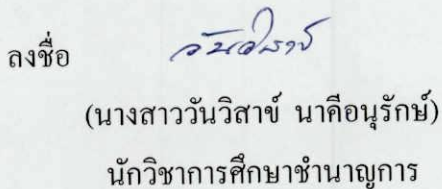 ลงชื่อ วันวิสาข์
(นางสาววันวิสาข์ นาคีอนุรักษ์)
นักวิชาการศึกษาชำนาญการ